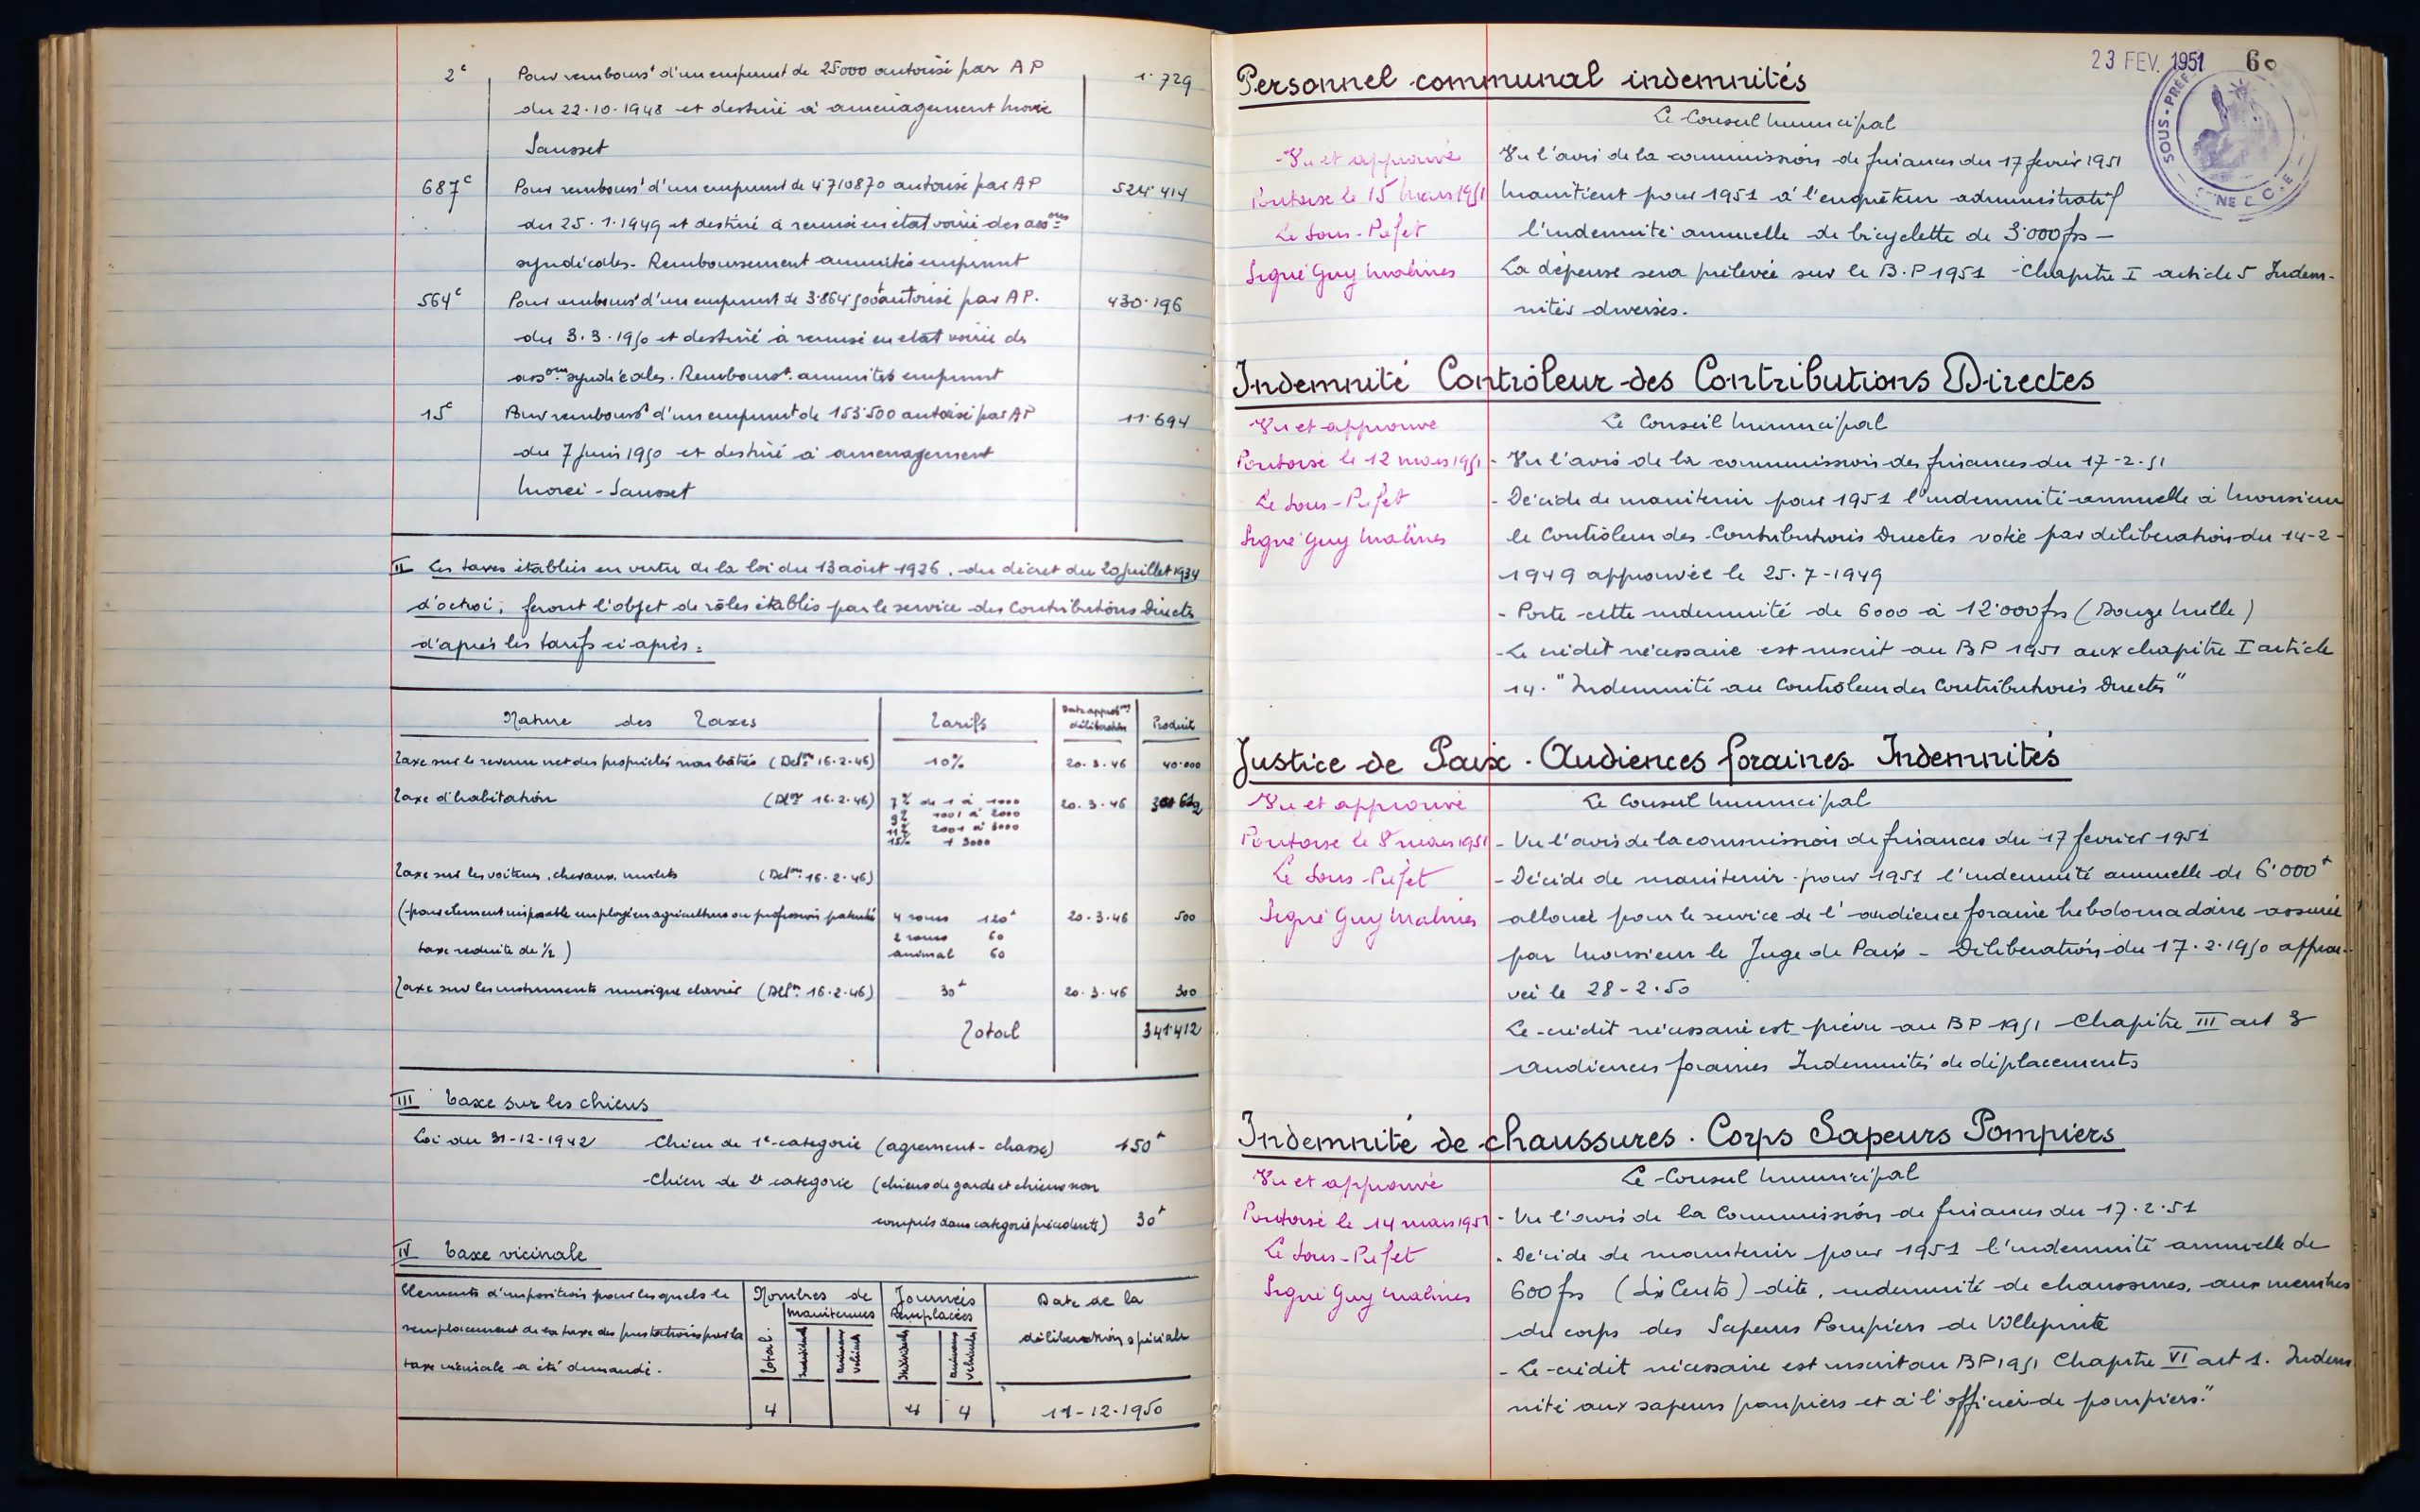 2e Pour rembours^t d'un emprunt de 25000 autorisé par AP 1.729
du 22.10.1948 et destiné à aménagement
Sausset
687c Pour rembours^t d'un emprunt de 4.710870 autorisé par AP 524.414
du 25.1.1949 et destiné à remise en état voirie des ass^ons
syndicales. Remboursement annuités emprunt
564c Pour rembours^t d'un emprunt de 3.864.500 autorisé par AP. 430.196
du 3.3.1950 et destiné à remise en état voirie des
ass^ons syndicales. Rembours^t annuités emprunt
15c Pour rembours^t d'un emprunt de 153.500 autorisé par AP 11.694
du 7 Juin 1950 et destiné à aménagement
Sausset
II Les taxes établies en vertu de la loi du 13 août 1926, du décret du 20 juillet 1934
d'octroi, feront l'objet de rôles établis par le service des Contributions Directes
d'après les tarifs ci-après :
Nature des Taxes Tarifs Date approb^on délibération Produit
Taxe sur le revenu net des propriétés non bâties (Dél^on 16.2.46) 10% 20.3.46 40.000
Taxe d'habitation (Dél^on 16.2.46) 7% de 1 à 1000 20.3.46
9% 1001 à 2000
11% 2001 à 3000
15% + 3000
Taxe sur les voitures, chevaux, mulets (Dél^on 16.2.46)
(pour élément imposable employé en agriculture ou profession patentée 4 roues 120f 20.3.46 500
taxe réduite de 1/2) 2 roues 60
animal 60
Taxe sur les instruments musique clavier (Dél^on 16.2.46) 30f 20.3.46 300
Total 341.412
III Taxe sur les chiens
Loi du 31-12-1942 Chien de 1e catégorie (agrément - chasse) 150f
Chien de 2e catégorie (chiens de garde et chiens non
compris dans catégorie précédente) 30f
IV Taxe vicinale
Eléments d'imposition pour lesquels le Nombres de Journées Date de la
remplacement de la taxe des prestations par la maintenues Remplacées délibération spéciale
taxe vicinale a été demandé. Total Individus animaux véhicules Individus animaux véhicules
4 4 4 11-12-1950
23 FEV. 1951 60
SOUS-PREF
NE & O
Personnel communal indemnités
Le Conseil Municipal
Vu et approuvé Vu l'avis de la commission de finances du 17 fevrier 1951
Pontoise le 15 Mars 1951 Maintient pour 1951 à l'enquêteur administratif
Le Sous-Préfet l'indemnité annuelle de bicyclette de 3.000 frs -
Signé Guy Malines La dépense sera prélevée sur le B.P 1951 - Chapitre I article 5 Indem-
nités diverses.
Indemnité Contrôleur des Contributions Directes
Vu et approuvé Le Conseil Municipal
Pontoise le 12 mars 1951 - Vu l'avis de la commission des finances du 17-2-51
Le Sous-Préfet - Décide de maintenir pour 1951 l'indemnité annuelle à Monsieur
Signé Guy Malines le Contrôleur des Contributions Directes votée par délibération du 14-2-
1949 approuvée le 25.7-1949
- Porte cette indemnité de 6000 à 12.000 frs (Douze Mille)
- Le crédit nécessaire est inscrit au BP 1951 aux chapitre I article
14. "Indemnité au Contrôleur des Contributions Directes"
Justice de Paix. Audiences foraines Indemnités
Vu et approuvé Le Conseil Municipal
Pontoise le 8 mars 1951 - Vu l'avis de la commission de finances du 17 fevrier 1951
Le Sous-Préfet - Décide de maintenir pour 1951 l'indemnité annuelle de 6.000f
Signé Guy Malines allouée pour le service de l'audience foraine hebdomadaire assurée
par Monsieur le Juge de Paix - Délibération du 17.2.1950 approu-
vée le 28-2-50
Le crédit nécessaire est prévu au BP 1951 Chapitre III art 3
audiences foraines Indemnités de déplacements
Indemnité de chaussures. Corps Sapeurs Pompiers
Vu et approuvé Le Conseil Municipal
Pontoise le 14 mars 1951 - Vu l'avis de la Commission de finances du 17.2.51
Le Sous-Préfet - Décide de maintenir pour 1951 l'indemnité annuelle de
Signé Guy Malines 600 frs (Six Cents) dite, indemnité de chaussures, aux membres
du corps des Sapeurs Pompiers de Villepinte
- Le crédit nécessaire est inscrit au BP 1951 Chapitre VI art 1. Indem
nité aux sapeurs pompiers et à l'officier de pompiers."